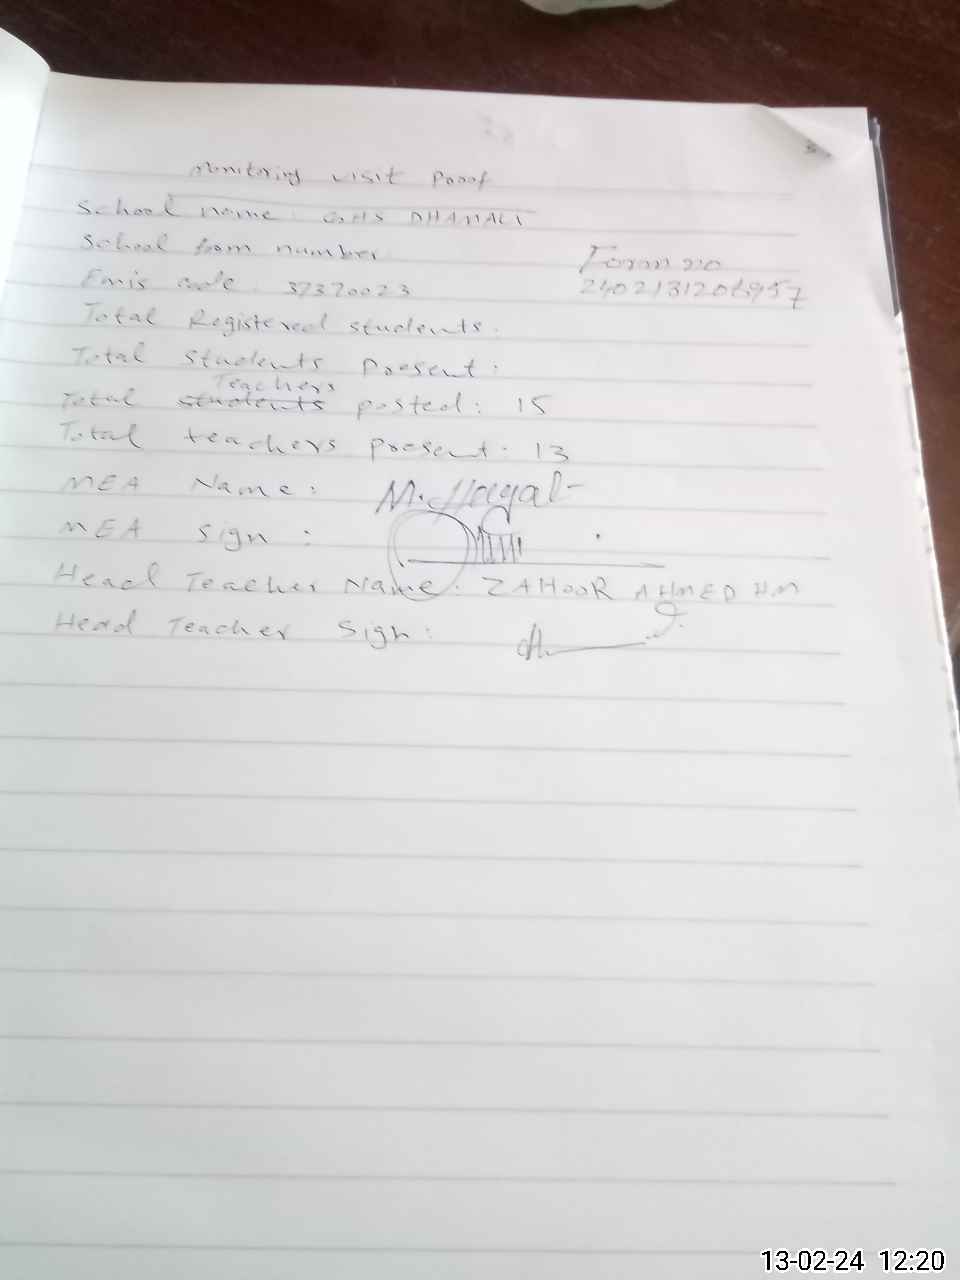 Monitoring visit Proof
School name : GHS DHAMALI
School from number
Form no
Emis code : 37370023
2402131206957
Total Registered students :
Total students Present :
Teachers
Total students posted : 15
Total teachers present : 13
MEA Name :
MEA Sign :
Head Teacher Name : ZAHOOR AHMED HM
Head Teacher Sign :
13-02-24 12:20